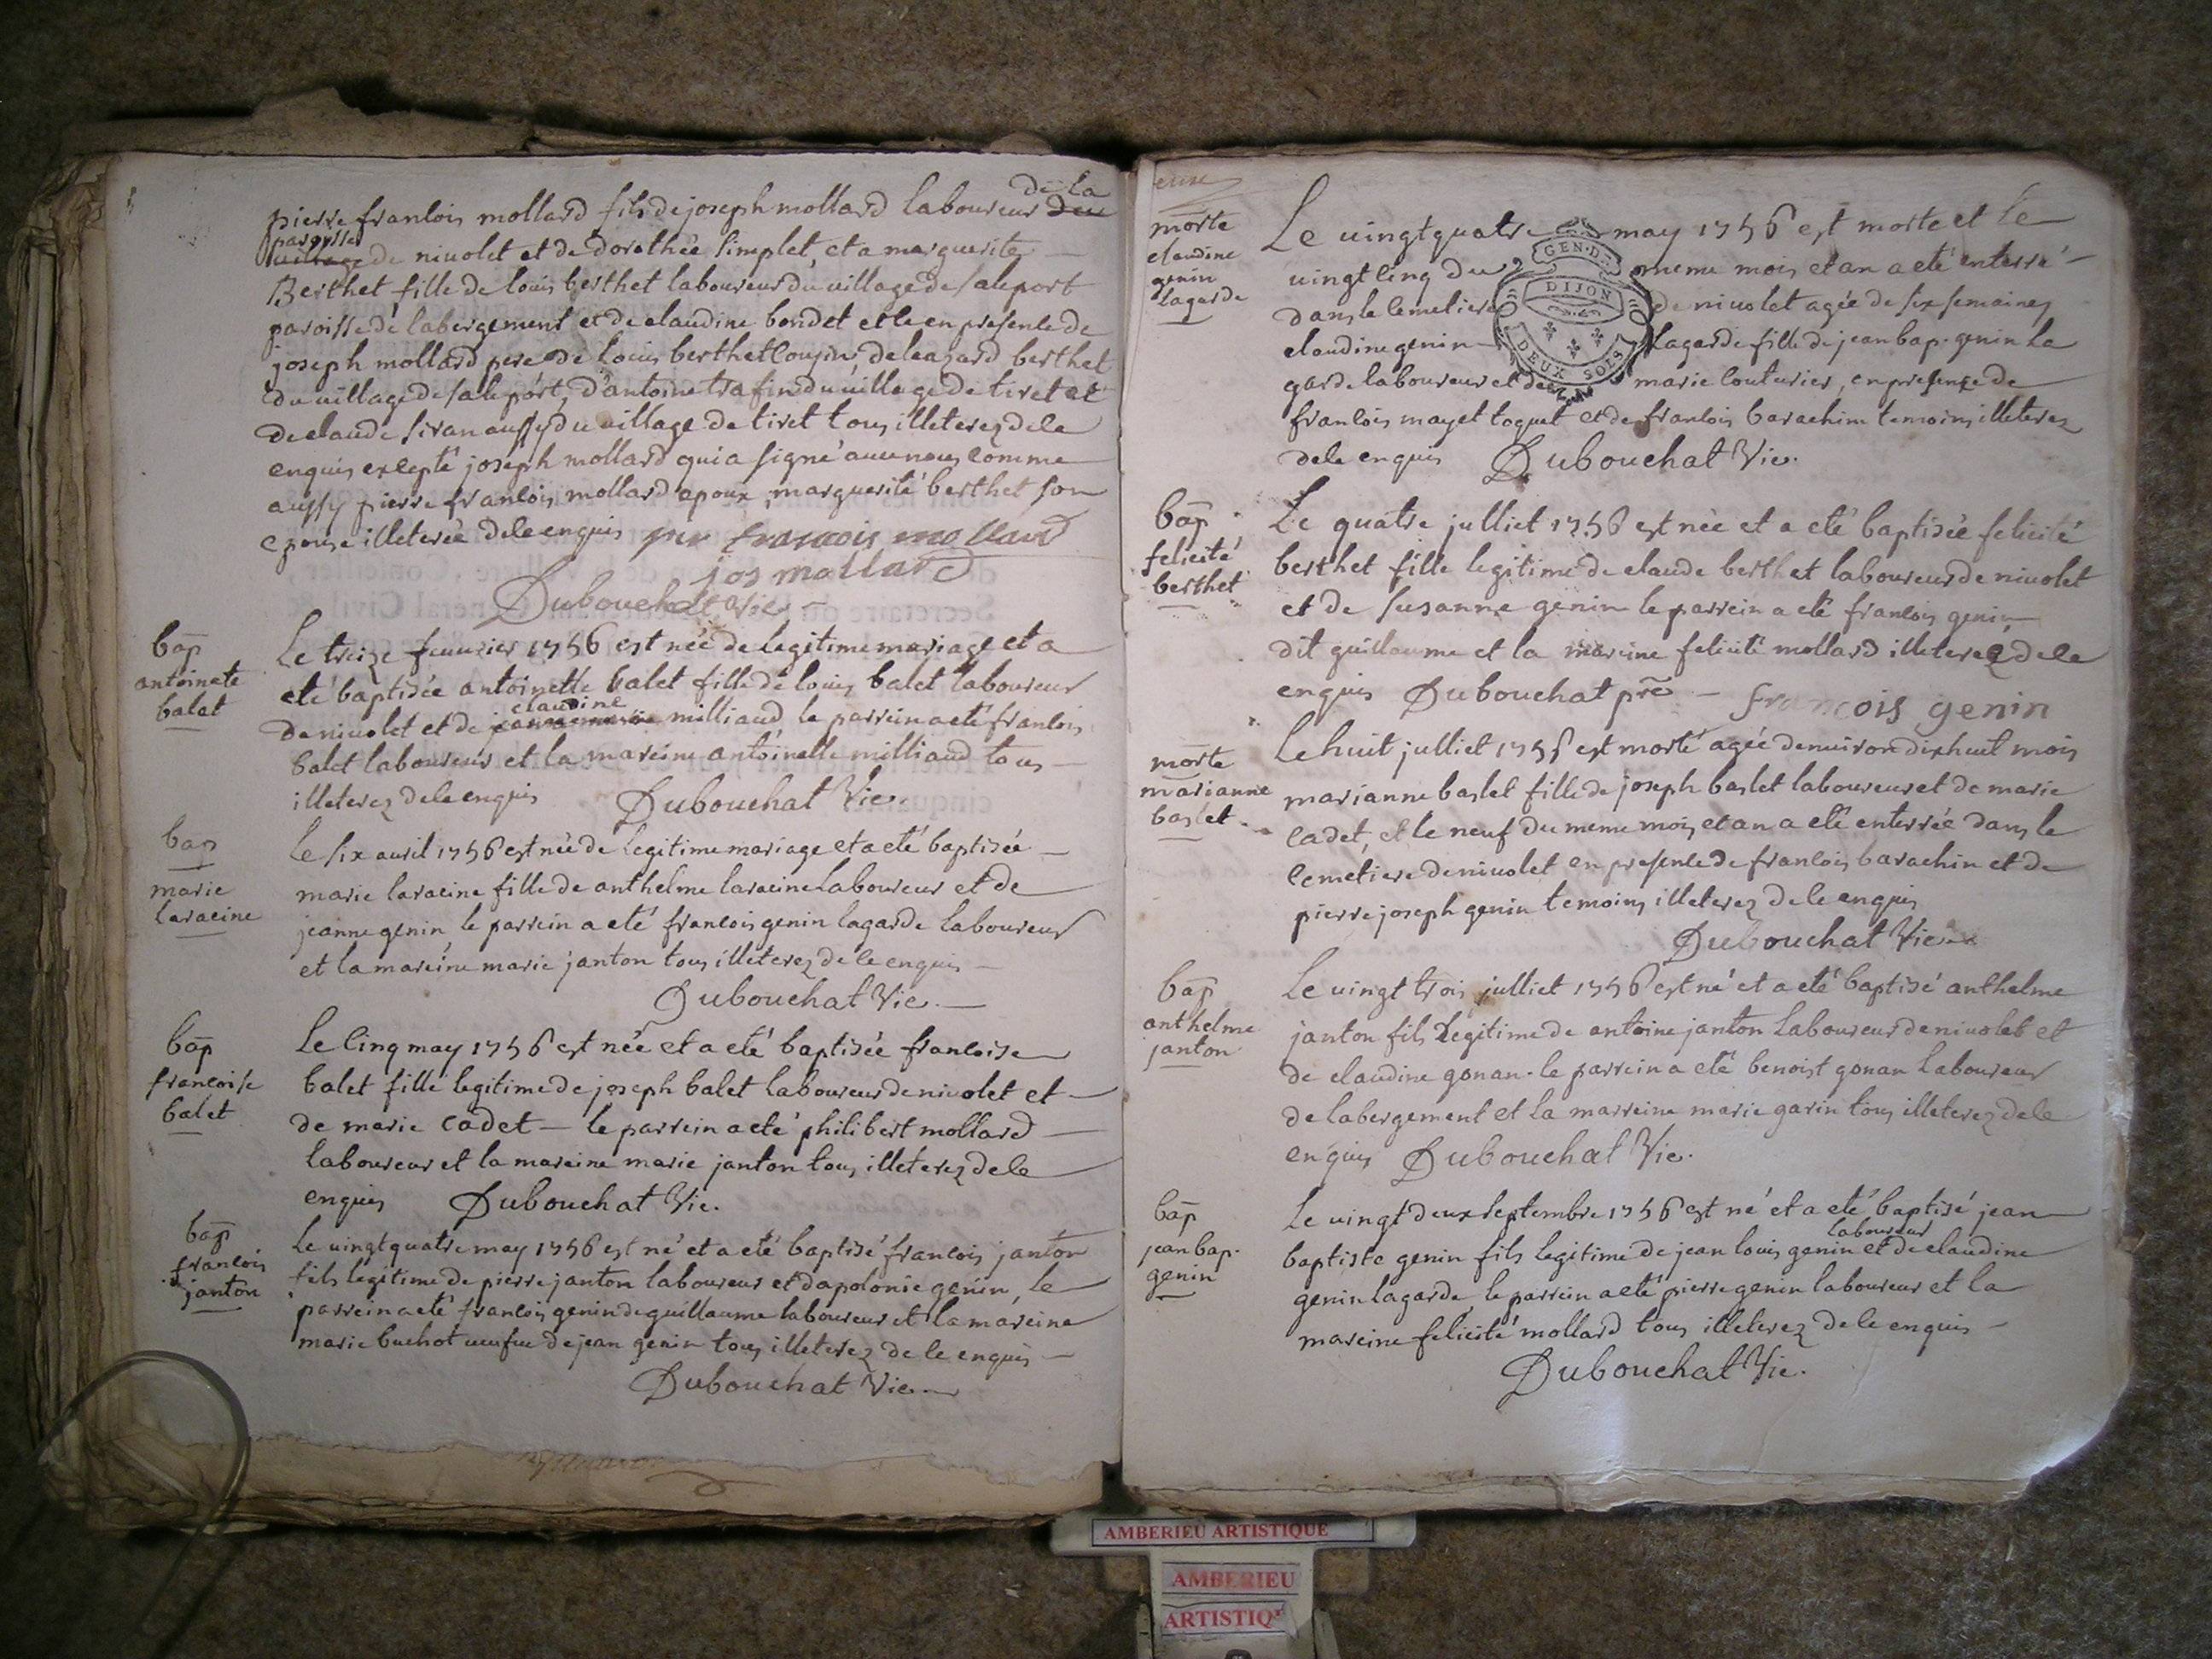 de la
pierre francois mollard fils de joseph mollard laboureur deu
paroisse
village de nivolet et de dorothée simplet, et a marguerite
Berthet fille de louis berthet laboureur du village de saleport
paroisse de labergement et de claudine bondet et le en presence de
joseph mollard pere de louis berthet cousin de leazard berthet
du village de saleport, d'antoine trafin du village de tiret et
de claude sivan aussy du village de tiret tous illeterez de ce
enquis excepté joseph mollard qui a signé avec nous comme
aussy pierre francois mollard epoux, marguerite berthet son
epouse illeterée de ce enquis pier francois mollard
jos mollard
Dubouchat Vic.
bap
antoinete
balet
Le treize fevrier 1756 est née de legitime mariage et a
eté baptisée antoinette balet fille de louis balet laboureur
claudine
de nivolet et de milliand le parrein a eté francois
balet laboureur et la mareine antoinette milliand tous
illeterez de ce enquis Dubouchat Vic.
bap
marie
laracine
Le six avril 1756 est née de legitime mariage et a eté baptisée
marie laracine fille de anthelme laracine laboureur et de
jeanne genin le parrein a eté francois genin lagarde laboureur
et la mareine marie janton tous illeterez de ce enquis
Dubouchat Vic.
bap
francoise
balet
Le cinq may 1756 est née et a eté baptisée francoise
balet fille legitime de joseph balet laboureur de nivolet et
de marie cadet le parrein a eté philibert mollard
laboureur et la mareine marie janton tous illeterez de ce
enquis Dubouchat Vic.
bap
francois
janton
Le vingt quatre may 1756 est né et a eté baptisé francois janton
fils legitime de pierre janton laboureur et dapolonie genin, le
parrein a eté francois genin de guillaume laboureur et la mareine
marie buchot veufve de jean genin tous illeterez de ce enquis
Dubouchat Vic.
morte
claudine
genin
lagarde
Le vingt quatre may 1756 est morte et le
vingt cinq du meme mois et an a eté enterré
dans le cemetiere de nivolet agée de six semaines
claudine genin lagarde fille de jean bap. genin la
garde laboureur et de marie couturier, en presence de
francois mayet toquet et de francois barachin temoins illeterez
de ce enquis Dubouchat Vic.
GEN. D.
DIJON
DEUX SOLS
bap
felicité
berthet
Le quatre julliet 1756 est née et a eté baptisée felicité
berthet fille legitime de claude berthet laboureur de nivolet
et de susanne genin le parrein a eté francois genin
dit guillaume et la mareine felicité mollard illeterez de ce
enquis Dubouchat prê francois genin
morte
marianne
baslet
Le huit julliet 1756 est morte agée denviron dixhuit mois
marianne baslet fille de joseph baslet laboureur et de marie
cadet, et le neuf du meme mois et an a eté enterrée dans le
cemetiere de nivolet en presence de francois barachin et de
pierre joseph genin temoins illeterez de ce enquis
Dubouchat Vic.
bap
anthelme
janton
Le vingt trois julliet 1756 est né et a eté baptisé anthelme
janton fils legitime de antoine janton laboureur de nivolet et
de claudine gonan. le parrein a eté benoist gonan laboureur
de labergement et la marreine marie garin tous illeterez de ce
enquis Dubouchat Vic.
bap
jean bap.
genin
Le vingt deux septembre 1756 est né et a eté baptisé jean
laboureur
baptiste genin fils legitime de jean louis genin et de claudine
genin lagarde, le parrein a eté pierre genin laboureur et la
mareine felicité mollard tous illeterez de ce enquis
Dubouchat Vic.
AMBERIEU ARTISTIQUE
AMBERIEU
ARTISTIQ